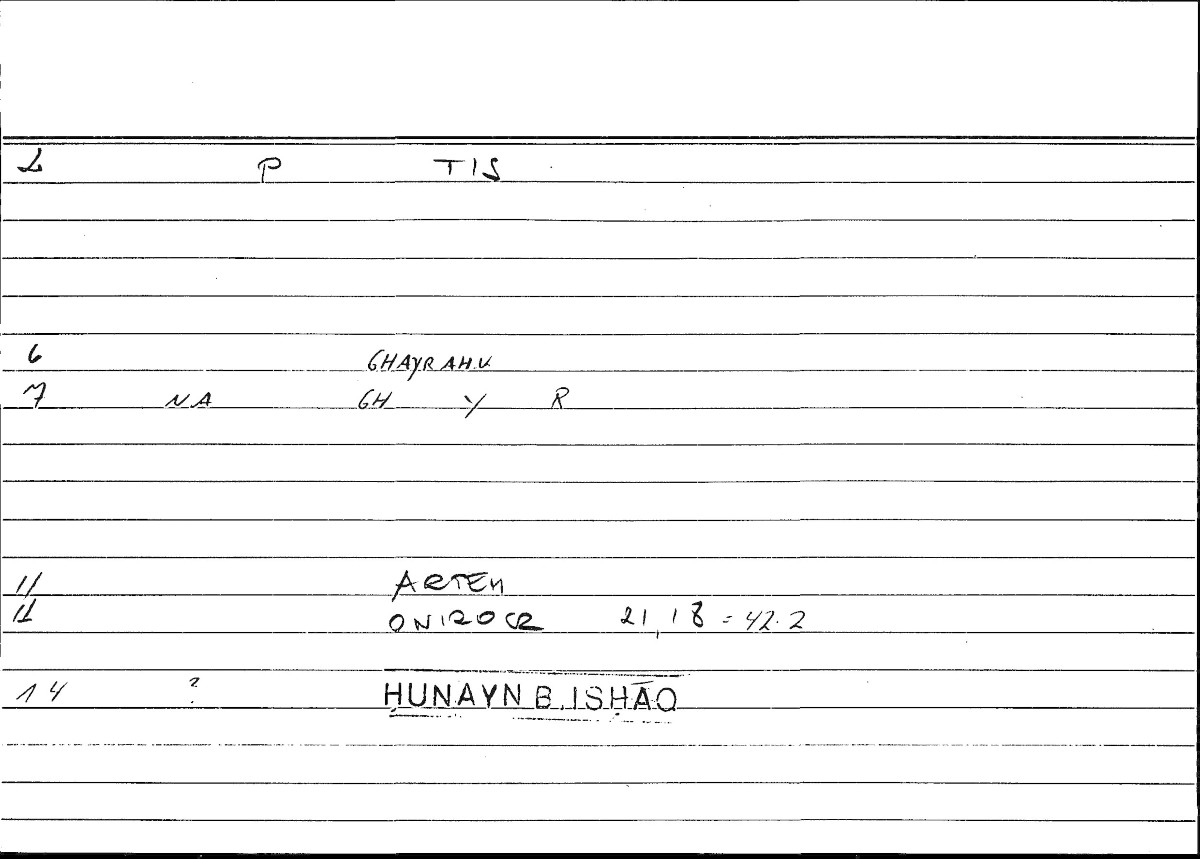 2 P TIS
6 GHAYRAHU
7 NA GH Y R
11 ARTEM
12 ONIROCR 21,18 = 42.2
14 ? ḤUNAYN B. ISḤĀQ